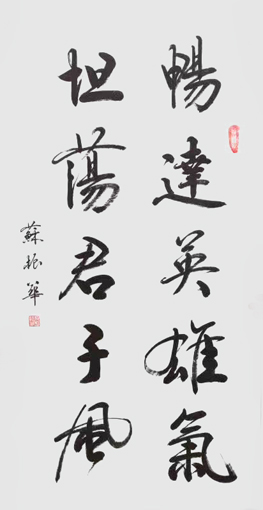 暢達英雄氣
坦蕩君子風
蘇振華